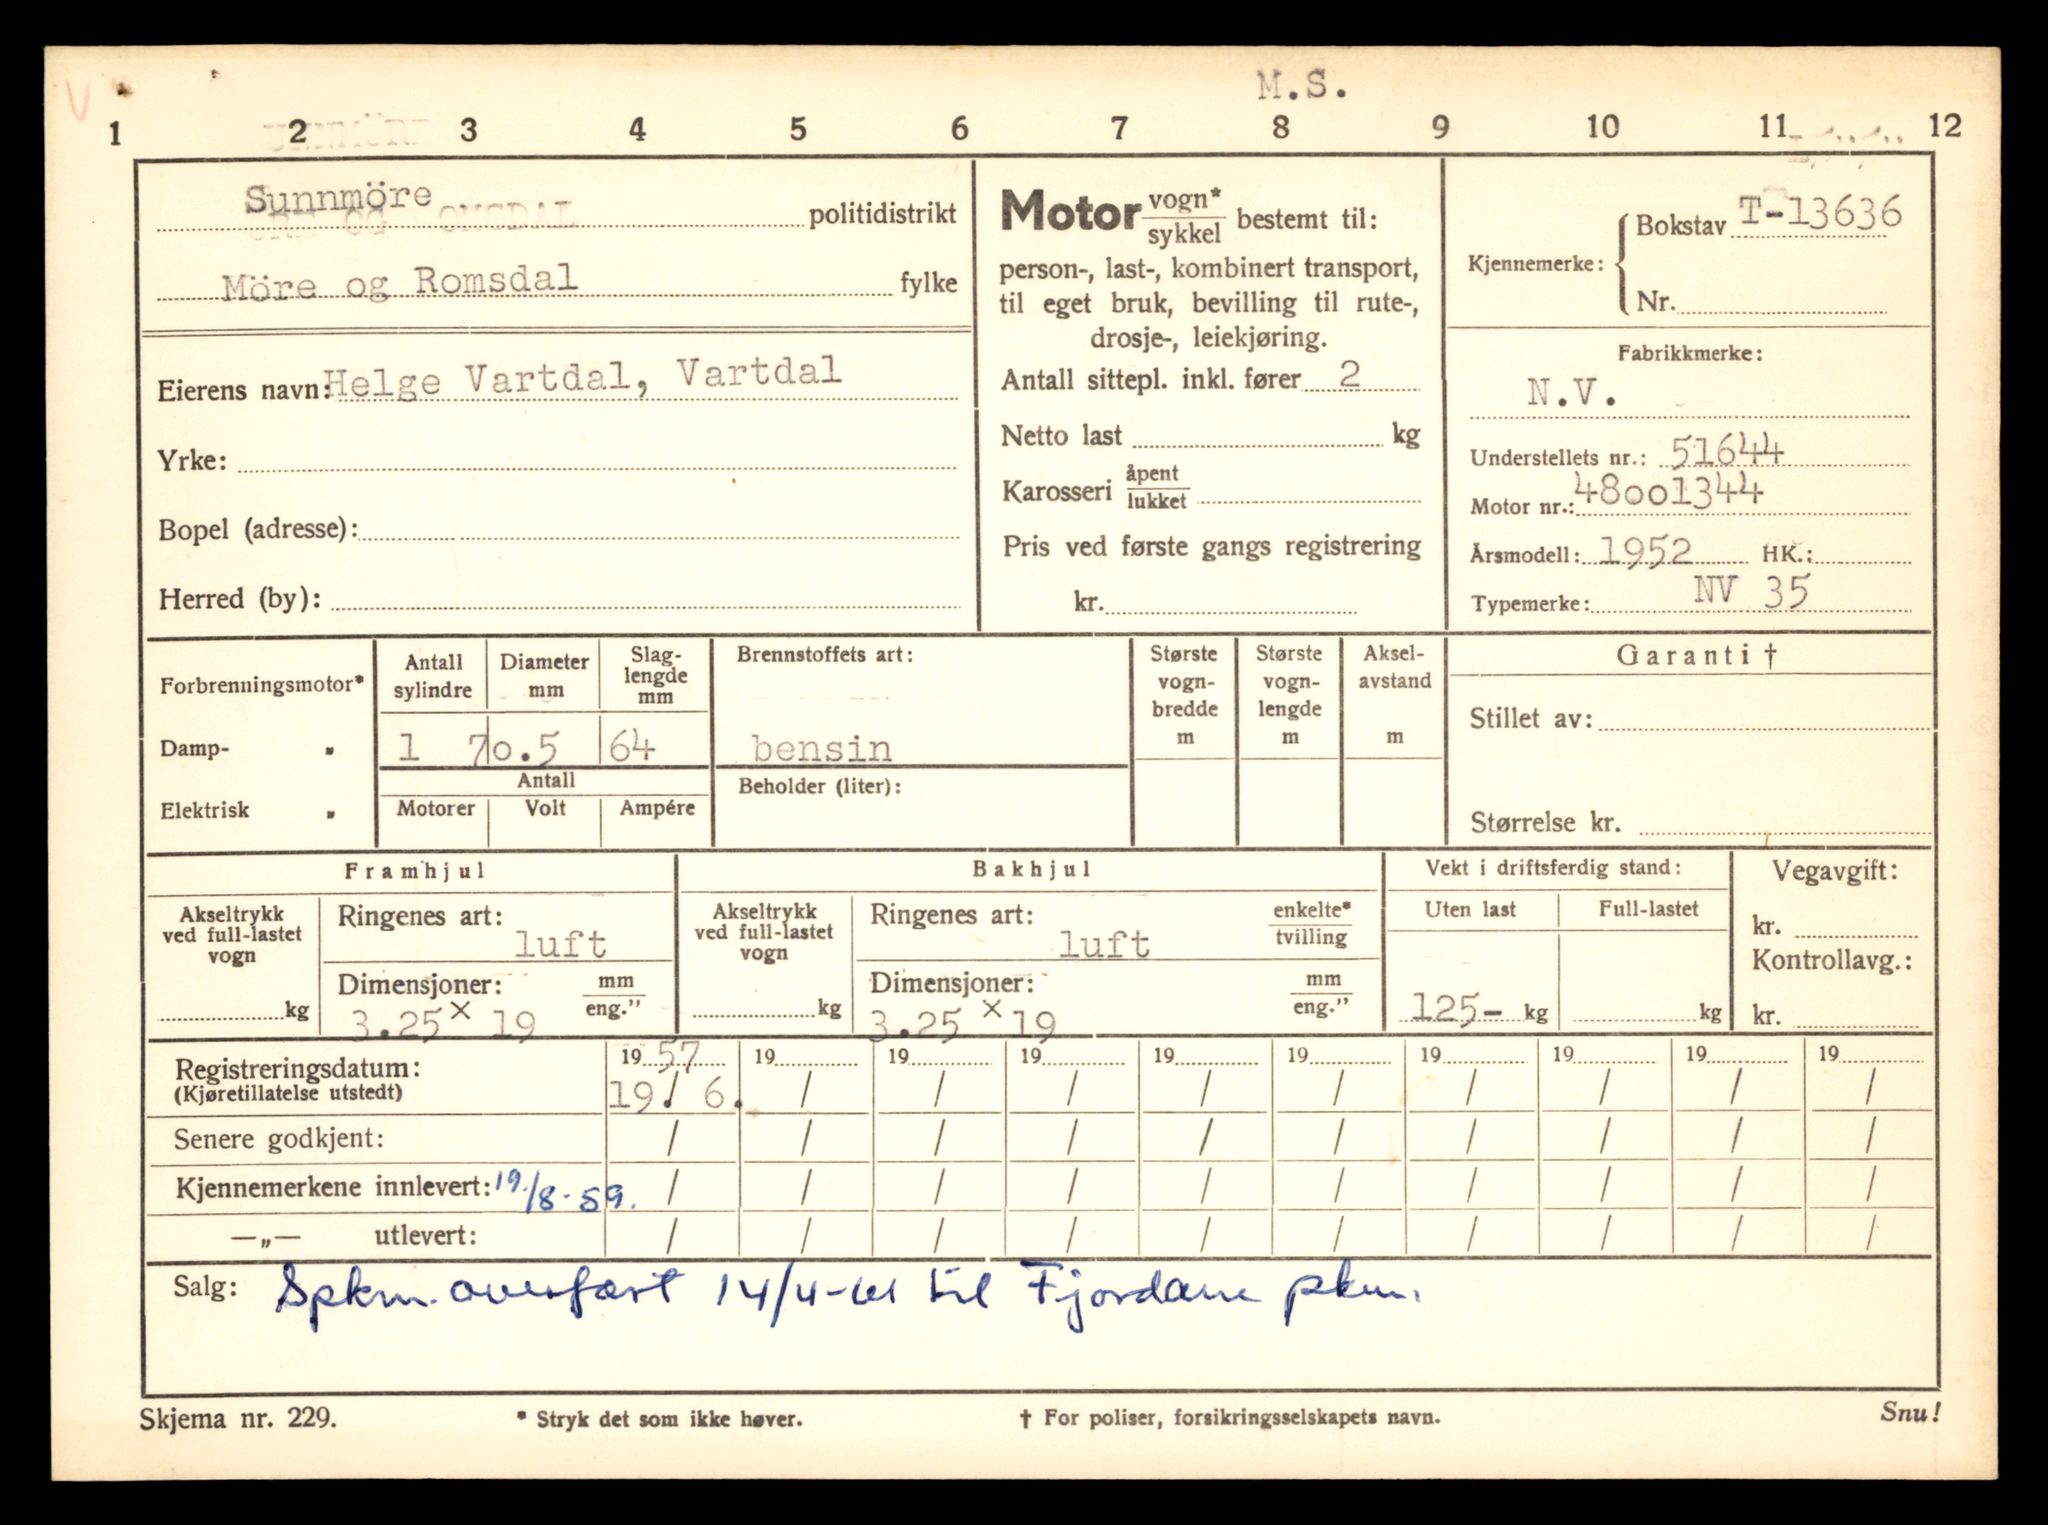 M.S.
1 2 3 4 5 6 7 8 9 10 11 12
Sunnmöre politidistrikt
Möre og Romsdal fylke
Eierens navn: Helge Vartdal, Vartdal
Yrke:
Bopel (adresse):
Herred (by):
Motor vogn* sykkel bestemt til:
person-, last-, kombinert transport,
til eget bruk, bevilling til rute-,
drosje-, leiekjøring.
Antall sittepl. inkl. fører 2
Netto last kg
Karosseri åpent lukket
Pris ved første gangs registrering
kr.
Kjennemerke: Bokstav T-13636
Nr.
Fabrikkmerke:
N.V.
Understellets nr.: 51644
Motor nr.: 48001344
Årsmodell: 1952 HK.:
Typemerke: NV 35
Forbrenningsmotor*
Damp- „
Elektrisk „
Antall sylindre
Diameter mm
Slag-
lengde
mm
1 70.5 64
Antall
Motorer Volt Ampére
Brennstoffets art:
bensin
Beholder (liter):
Største
vogn-
bredde
m
Største
vogn-
lengde
m
Aksel-
avstand
m
Garanti †
Stillet av:
Størrelse kr.
Framhjul
Akseltrykk
ved full-lastet
vogn
kg
Ringenes art:
luft
Dimensjoner: mm eng."
3.25 x 19
Bakhjul
Akseltrykk
ved full-lastet
vogn
kg
Ringenes art: enkelte* tvilling
luft
Dimensjoner: mm eng."
3.25 x 19
Vekt i driftsferdig stand:
Uten last Full-lastet
125- kg kg
Vegavgift:
kr.
Kontrollavg.:
kr.
Registreringsdatum: 19 57 19 19 19 19 19 19 19 19 19
(Kjøretillatelse utstedt) 19. / 6. / / / / / / / / /
Senere godkjent: / / / / / / / / / /
Kjennemerkene innlevert: 19./8-59. / / / / / / / / / /
—„— utlevert: / / / / / / / / / /
Salg: Spkm. overført 14/4-61 til Fjordane pkm.
Skjema nr. 229. * Stryk det som ikke høver. † For poliser, forsikringsselskapets navn. Snu!